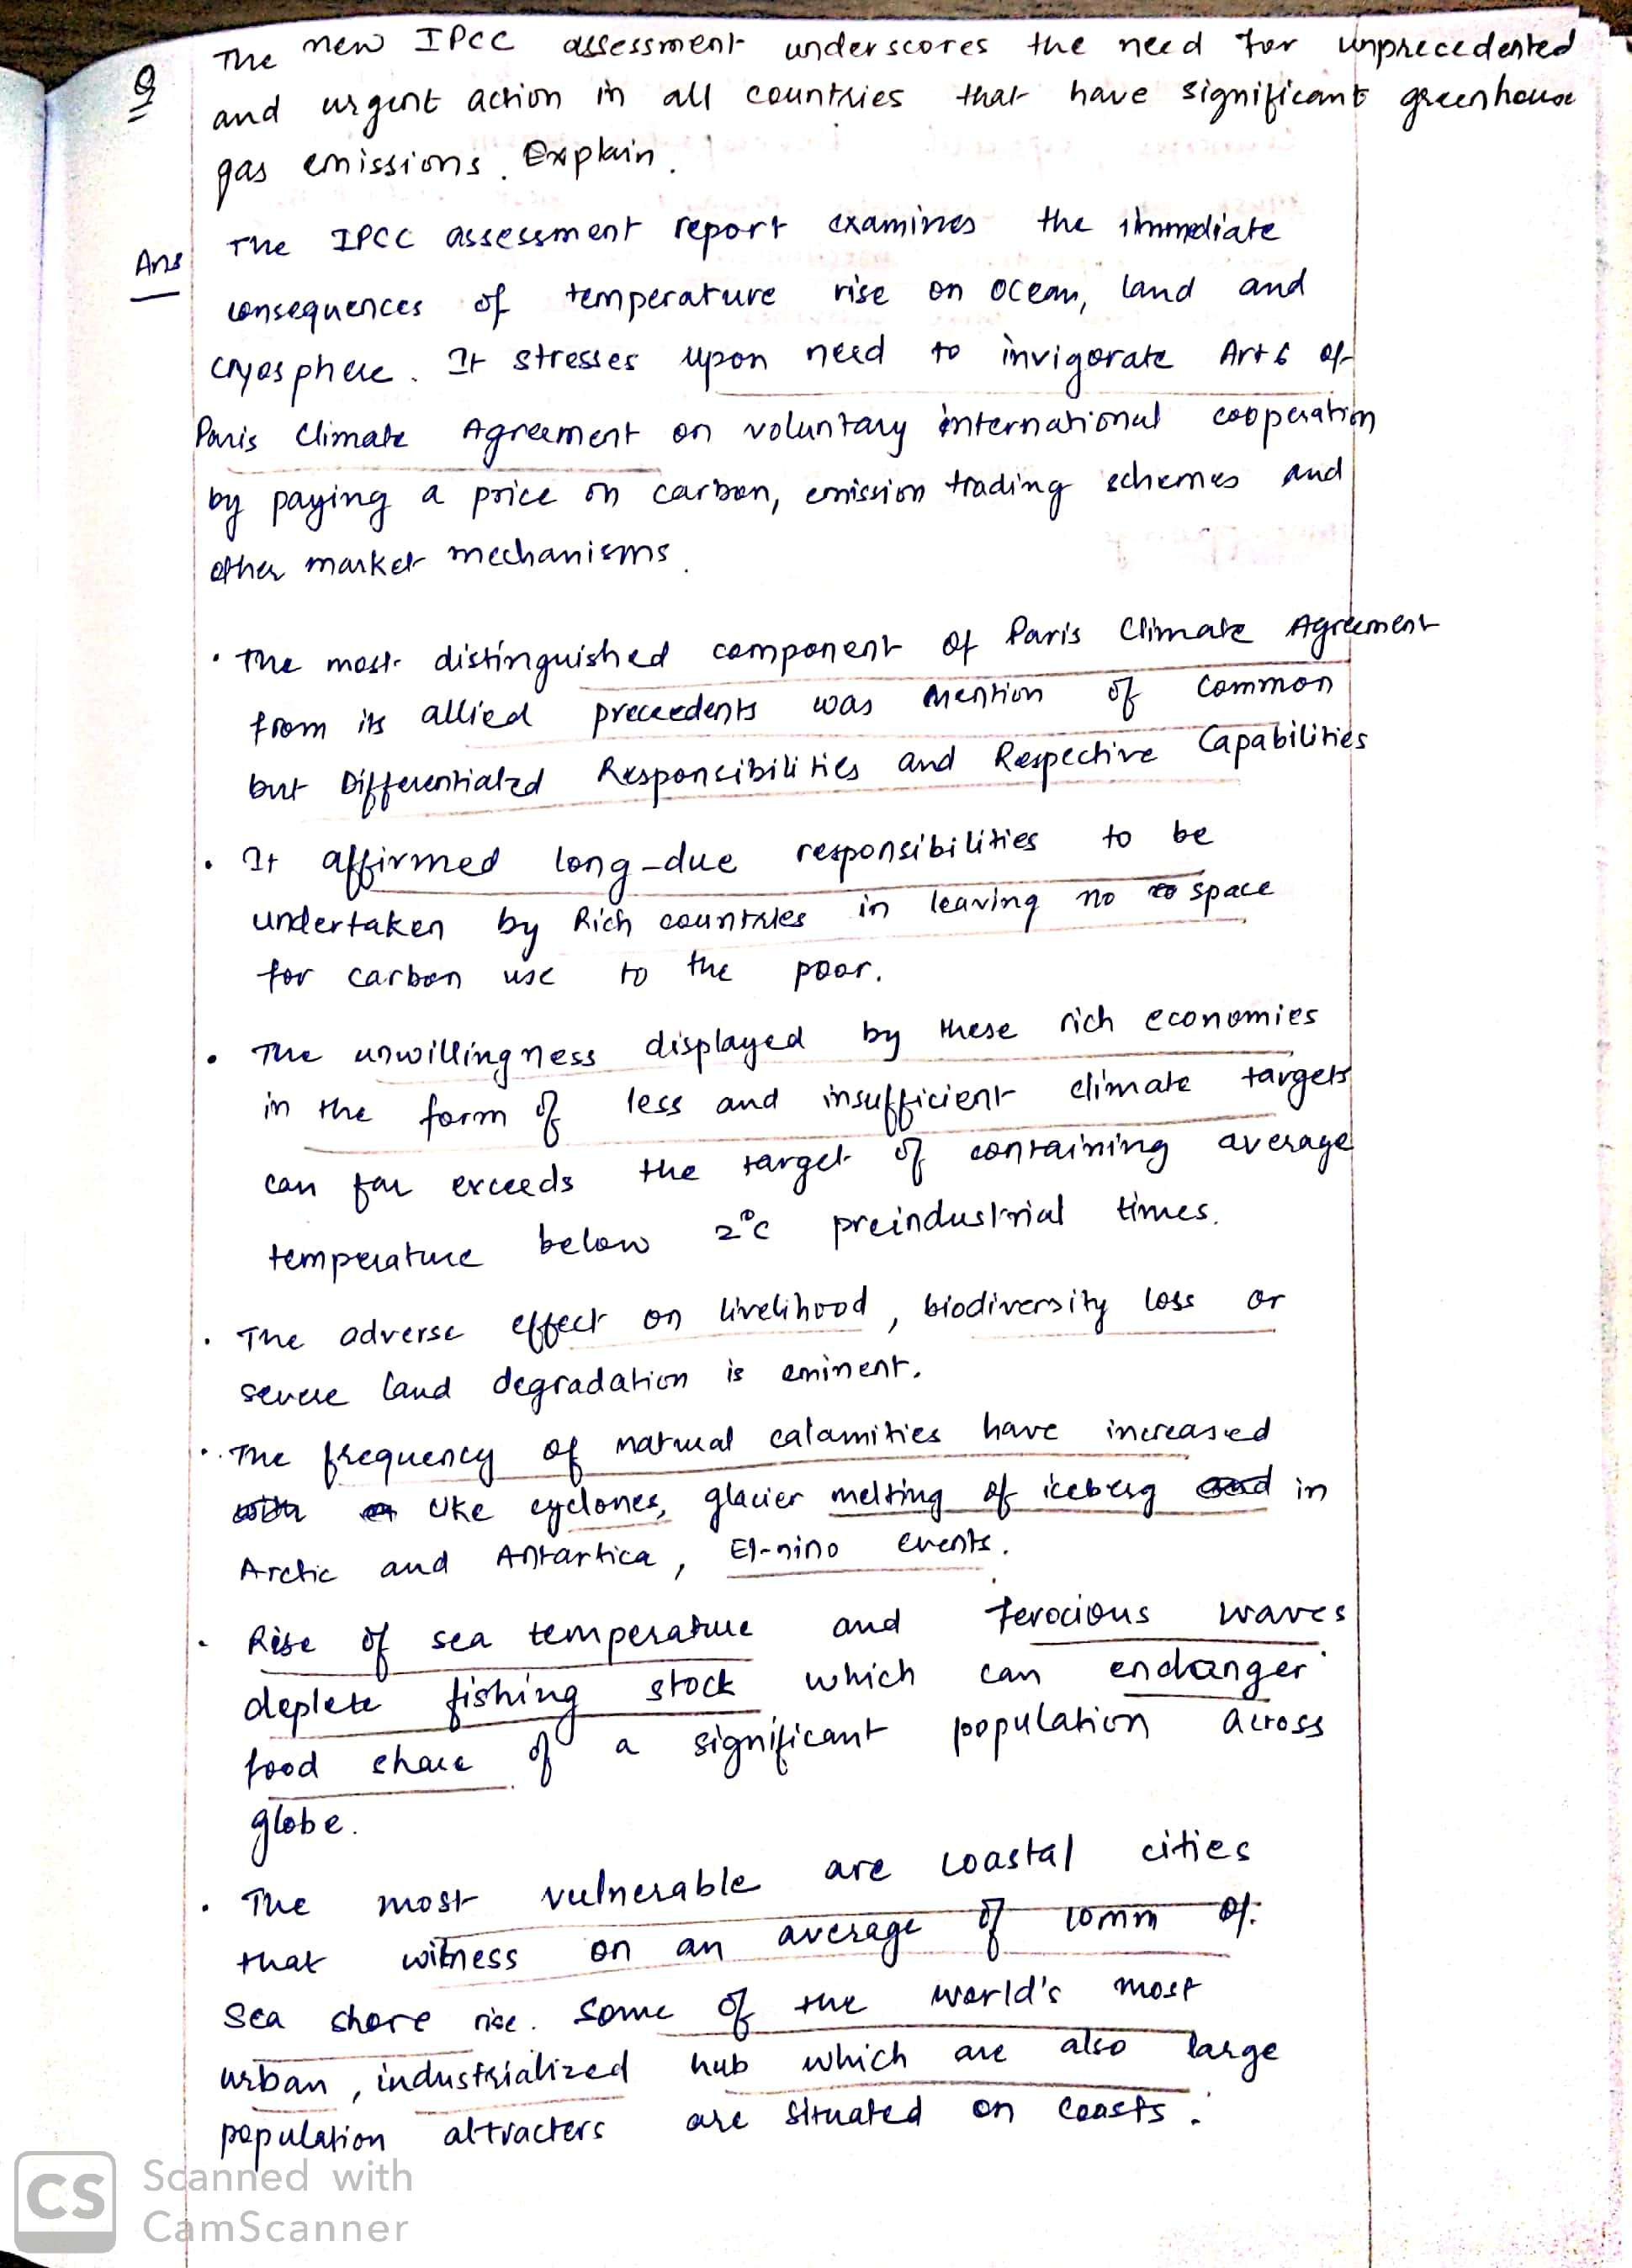 Q The new IPCC assessment underscores the need for unprecedented
and urgent action in all countries that have significant greenhouse
gas emissions. Explain.
Ans The IPCC assessment report examines the immediate
consequences of temperature rise on ocean, land and
cryosphere. It stresses upon need to invigorate Art 6 of
Paris Climate Agreement on voluntary international cooperation
by paying a price on carbon, emission trading schemes and
other market mechanisms.
• The most distinguished component of Paris Climate Agreement
from its allied preceedents was mention of Common
but Differentiated Responsibilities and Respective Capabilities
• It affirmed long-due responsibilities to be
undertaken by Rich countries in leaving no space
for carbon use to the poor.
• The unwillingness displayed by these rich economies
in the form of less and insufficient climate targets
can far exceeds the target of containing average
temperature below 2°C preindustrial times.
• The adverse effect on livelihood, biodiversity loss or
severe land degradation is eminent.
• The frequency of natural calamities have increased
with like cyclones, glacier melting of iceberg and in
Arctic and Antartica, El-nino events.
• Rise of sea temperature and ferocious waves
deplete fishing stock which can endanger
food share of a significant population across
globe.
• The most vulnerable are coastal cities
that witness on an average of 10mm of
sea shore rise. Some of the world's most
urban, industrialized hub which are also large
population attracters are situated on coasts.
CS Scanned with
CamScanner